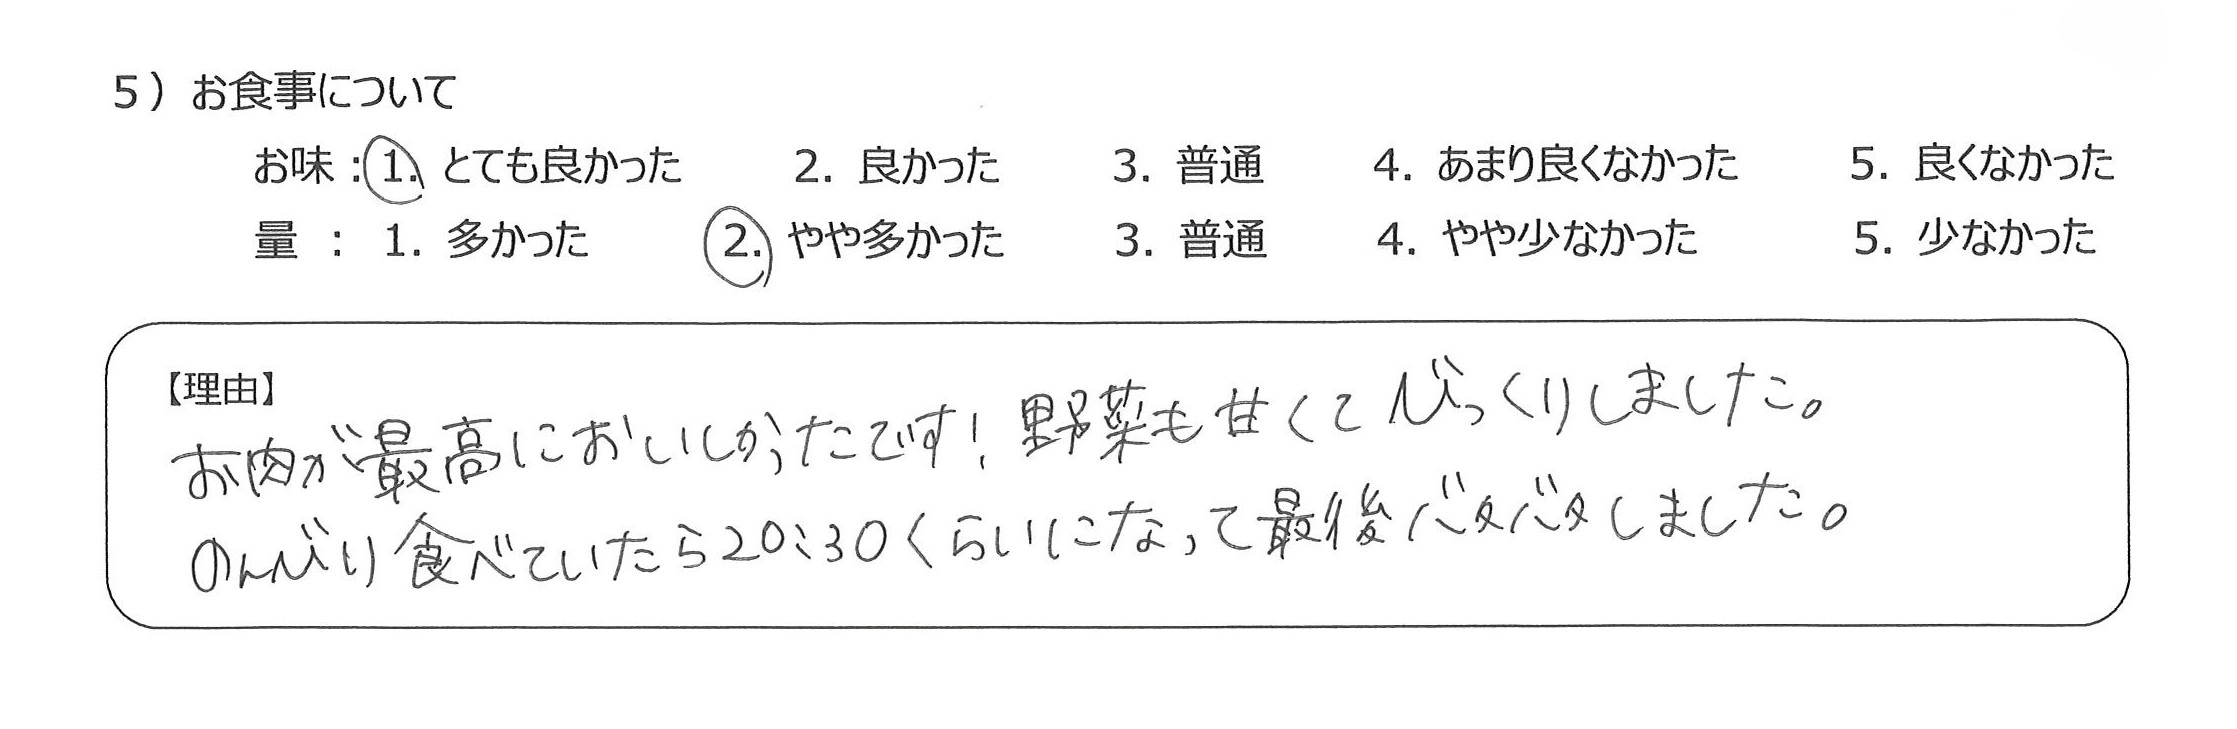 5）お食事について
お味：1. とても良かった 2. 良かった 3. 普通 4. あまり良くなかった 5. 良くなかった
量 ： 1. 多かった 2. やや多かった 3. 普通 4. やや少なかった 5. 少なかった
【理由】
お肉が最高においしかったです！野菜も甘くてびっくりしました。
のんびり食べていたら20:30くらいになって最後バタバタしました。